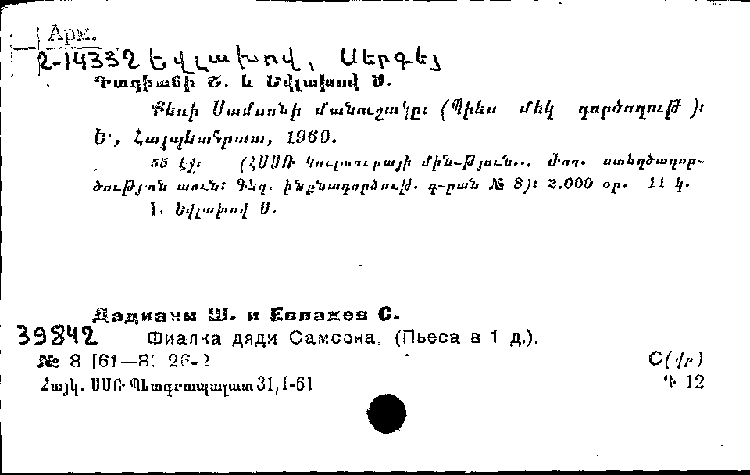 Арм.
2-14332 Եվլախով, Սերգեյ
Դադիանի Շ. և Եվլախով Ս.
Քեռի Սամսոնի մանուշակը: (Պիես մեկ գործողութ.):
Ե., Հայպետհրատ, 1960.
55 էջ: (ՀՍՍՌ Կուլտուրայի մին-թյուն... Ժող. ստեղծագոր-
ծության տուն: Գեղ. ինքնագործուն. գ-րան № 8): 2.000 օր. 11 կ.
1. Եվլախով Ս.
Дадиани Ш. и Евлахов С.
39842 Фиалка дяди Самсона. (Пьеса в 1 д.).
№ 8 [61—8] 26-2 С(վր)
Հայկ. ՍՍՌ Պետգրապալատ 31, 1-61 Դ 12